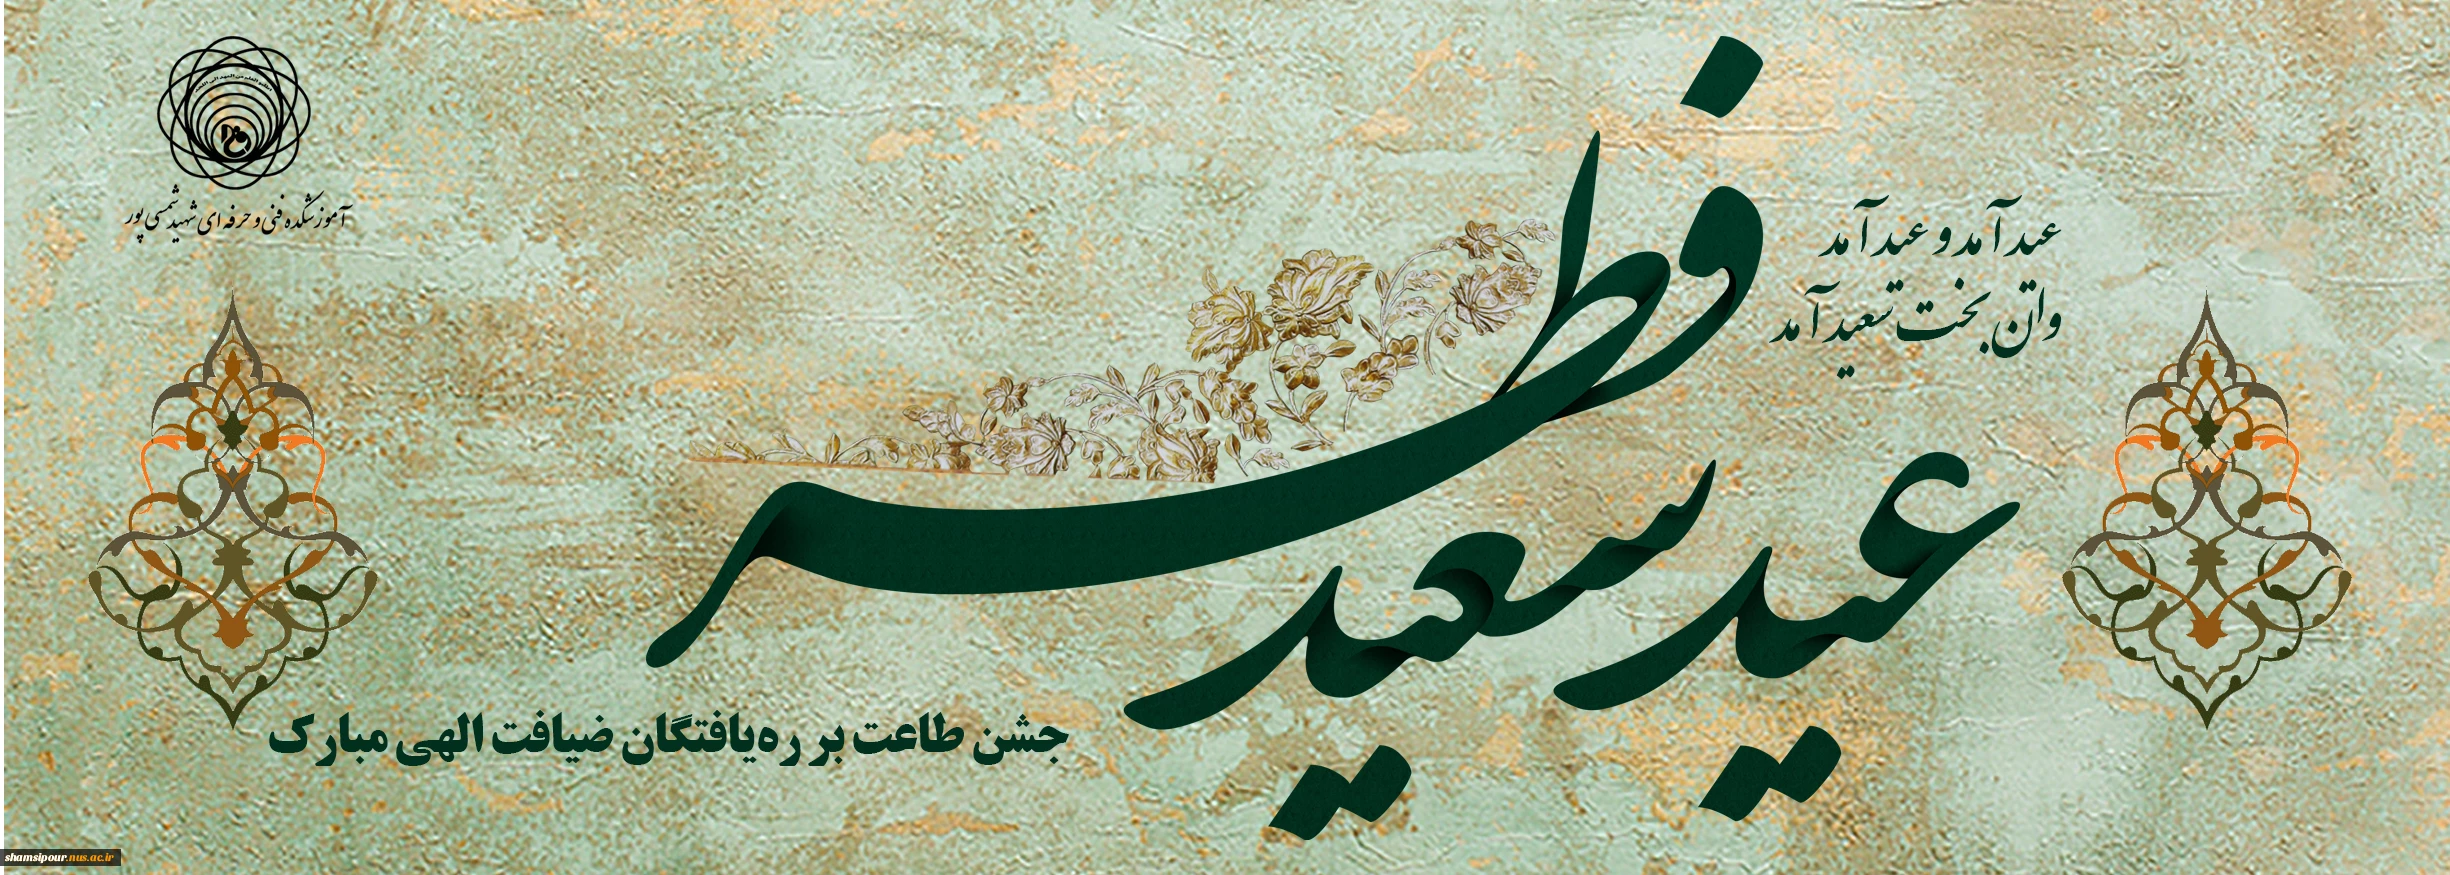 آموزشکده فنی و حرفه ای شهید شمسی پور
عید آمد و عید آمد
وان بخت سعید آمد
عید سعید فطر
جشن طاعت بر ره‌یافتگان ضیافت الهی مبارک
shamsipour.nus.ac.ir